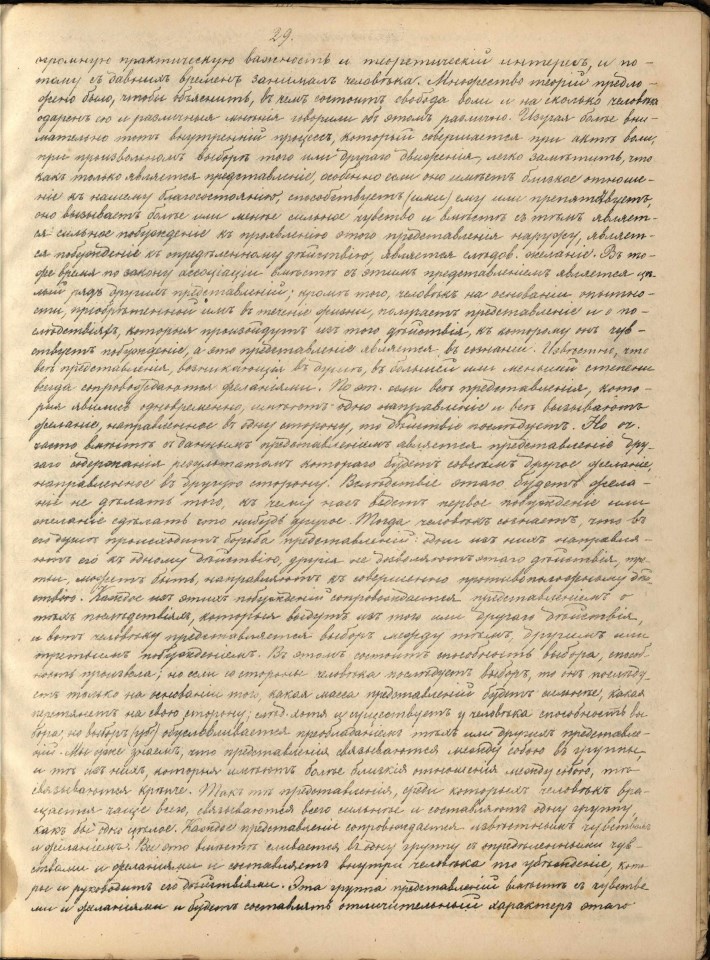 29.
огромную практическую важность и теоретический интересъ, и по-
тому съ давнихъ временъ занималъ человѣка. Множество теорій предло-
жено было, чтобы объяснить, въ чемъ состоитъ свобода воли и на сколько человѣкъ
одаренъ ею и различныя мнѣнія говорили объ этомъ различно. Изучая болѣе вни-
мательно тотъ внутренній процессъ, который совершается при актѣ воли,
при произвольномъ выборѣ того или другаго движенія, легко замѣтить, что
какъ только является представленіе, особенно если оно имѣетъ близкое отноше-
ніе къ нашему благосостоянію, способствуетъ (ими) ему или препятствуетъ,
оно вызываетъ болѣе или менѣе сильное чувство и вмѣстѣ съ тѣмъ являет-
ся сильное побужденіе къ проявленію этого представленія наружу, являет-
ся побужденіе къ опредѣленному дѣйствію, является слѣдов. желаніе. Въ то-
же время по закону ассоціаціи вмѣстѣ съ этимъ представленіемъ является цѣ-
лый рядъ другихъ представленій; кромѣ того, человѣкъ на основаніи опытно-
сти, пріобрѣтенной имъ въ теченіе жизни, получаетъ представленіе и о по-
слѣдствіяхъ, которыя произойдутъ изъ того дѣйствія, къ которому онъ чув-
ствуетъ побужденіе, а это представленіе является въ сознаніи. Извѣстно, что
всѣ представленія, возникающія въ душѣ, въ большей или меньшей степени
всегда сопровождаются желаніями. По эт. если всѣ представленія, кото-
рыя явились одновременно, имѣютъ одно направленіе и всѣ вызываютъ
желаніе, направленное въ одну сторону, то дѣйствіе послѣдуетъ. Но оч.
часто вмѣстѣ съ даннымъ представленіемъ является представленіе дру-
гаго содержанія результатомъ котораго будетъ совсѣмъ другое желаніе,
направленное въ другую сторону. Вслѣдствіе этаго будетъ жела-
ніе не дѣлать того, къ чему насъ ведетъ первое побужденіе или
желаніе сдѣлать что нибудь другое. Тогда человѣкъ сознаетъ, что въ
его душѣ происходитъ борьба представленій: одни изъ нихъ направля-
ютъ его къ одному дѣйствію, другія не дозволяютъ этаго дѣйствія, тре-
тьи, можетъ быть, направляютъ къ совершенно противоположному дѣй-
ствію. Каждое изъ этихъ побужденій сопровождается представленіемъ о
тѣхъ послѣдствіяхъ, которыя выйдутъ изъ того или другаго дѣйствія,
и вотъ человѣку представляется выборъ между тѣмъ, другимъ или
третьимъ побужденіемъ. Въ этомъ состоитъ способность выбора, способ-
ность произвола; но если со стороны человѣка послѣдуетъ выборъ, то онъ послѣду-
етъ только на основаніи того, какая масса представленій будетъ сильнѣе, какая
перетянетъ на свою сторону; слѣд. хотя и существуетъ у человѣка способность вы-
бора, но выборъ обусловливается преобладаніемъ тѣхъ или другихъ представле-
ній. Мы уже знаемъ, что представленія связываются между собою въ группы,
и тѣ изъ нихъ, которыя имѣютъ болѣе близкія отношенія между собою, тѣ
связываются крѣпче. Такъ тѣ представленія, среди которыхъ человѣкъ вра-
щается чаще всего, связываются всего сильнѣе и составляютъ одну группу,
какъ бы одно цѣлое. Каждое представленіе сопровождается извѣстнымъ чувствомъ
и желаніемъ. Все это вмѣстѣ сливается въ одну группу съ опредѣленными чув-
ствами и желаніями и составляетъ внутри человѣка то убѣжденіе, кото-
рое и руководитъ его дѣйствіями. Эта группа представленій вмѣстѣ съ чувства-
ми и желаніями и будетъ составлять отличительный характеръ этаго